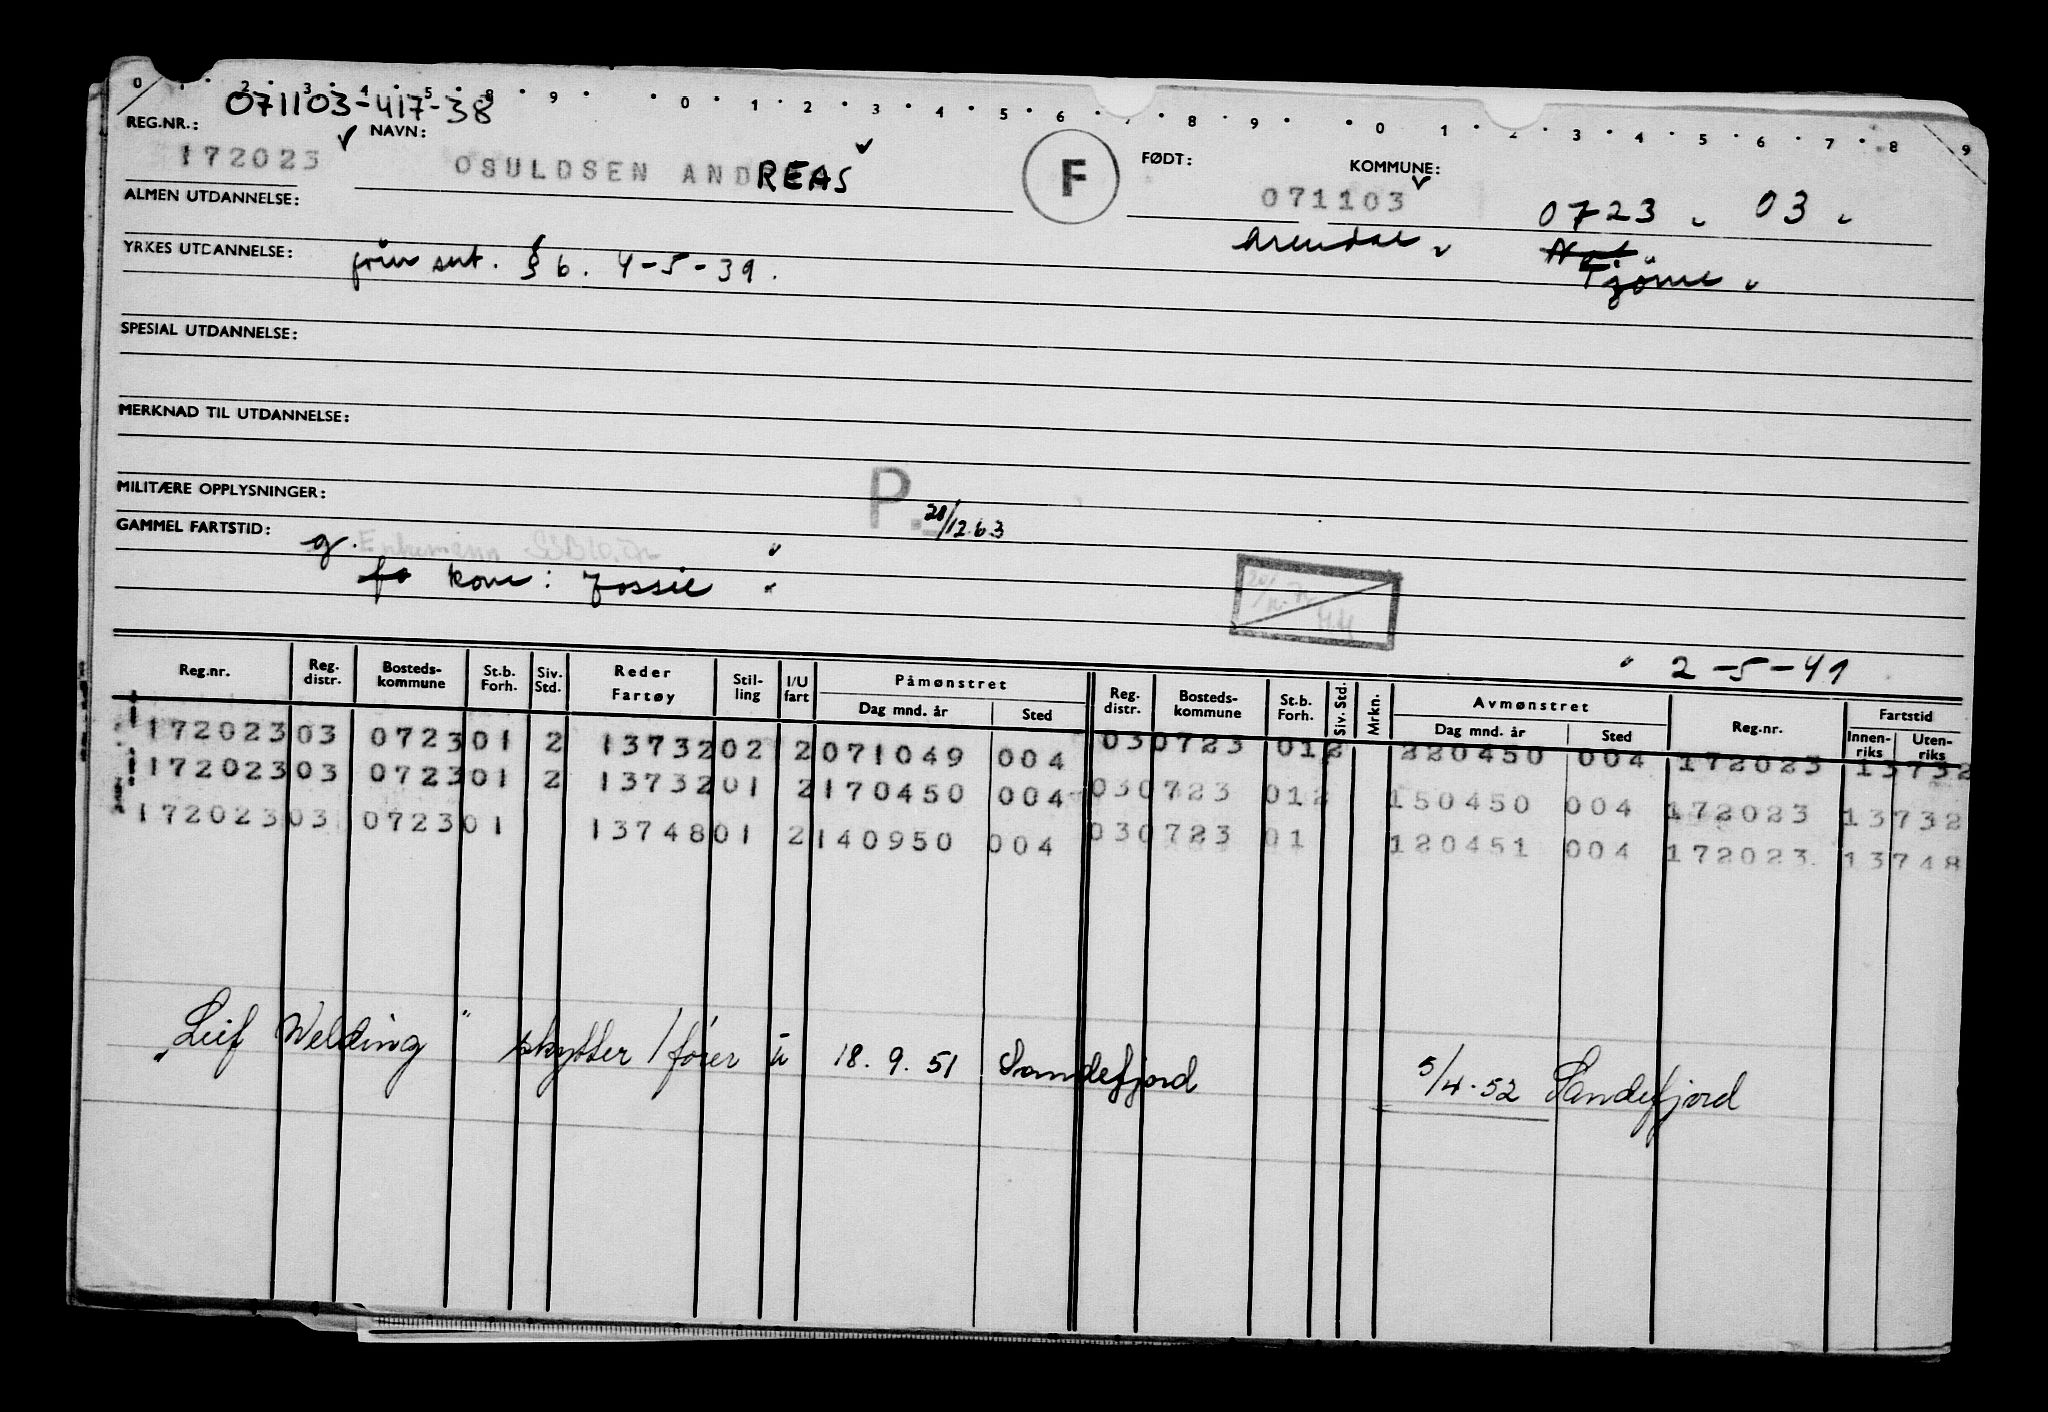 0 2 3 4 5 8 9 0 1 2 3 4 5 6 7 8 9 0 1 2 3 4 5 6 7 8 9
071103-417-38
REG.NR.: NAVN: FØDT: KOMMUNE:
172023 OSULDSEN ANDREAS F 071103 0723 03
ALMEN UTDANNELSE: Arendal Tjøme
YRKES UTDANNELSE: § 6. 4-5-39.
SPESIAL UTDANNELSE:
MERKNAD TIL UTDANNELSE:
MILITÆRE OPPLYSNINGER: P. 20/12.63
GAMMEL FARTSTID: g.
kone: Jossie
2-5-41
Reg.nr. Reg. distr. Bosteds-kommune St.b. Forh. Siv. Std. Reder Fartøy Stil-ling I/U fart Påmønstret Dag mnd. år Sted Reg. distr. Bosteds-kommune St.b. Forh. Siv. Std. Mrkn. Avmønstret Dag mnd. år Sted Reg.nr. Fartstid Innen-riks Uten-riks
172023 03 0723 01 2 13732 02 2 071049 004 03 0723 01 2 220450 004 172023 13732
172023 03 0723 01 2 13732 01 2 170450 004 03 0723 01 2 150450 004 172023 13732
172023 03 0723 01 13748 01 2 140950 004 03 0723 01 120451 004 172023 13748
"Leif Welding" skytter/fører u 18.9.51 Sandefjord 5/4.52 Sandefjord